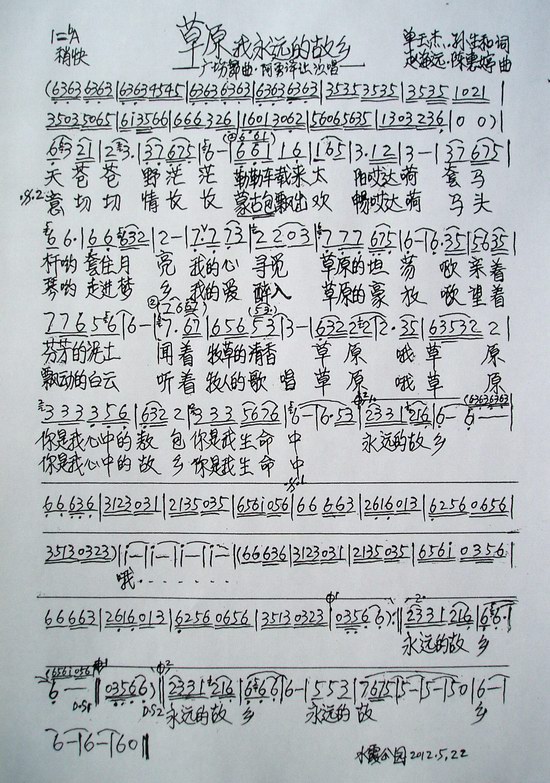 1=♭A
稍快
草原我永远的故乡
广场舞曲·阿 演唱
单玉杰、孙生和词
赵海远、陈惠婷曲
(6363 6363|6363 4545|6363 6363|6363 6363|3535 3535|3535 1021|
3503 5065|6i35 66|666 326|1601 3062|5606 5635|1303 236|0 0)|
天 苍 苍 野 茫 茫 勒勒车载来太 阳哎达嗬 套 马
意 切 切 情 长 长 蒙古包飘出欢 畅哎达嗬 马 头
杆哟 套住月 亮 我的心 寻觅 草原的坦 荡 哦 亲着
琴哟 走进梦 乡 我的爱 醉入 草原的豪 放 哦 望着
芬芳的泥土 闻着 牧草的清香 草 原 哦 草 原
飘动的白云 听着 牧人的歌 唱 草 原 哦 草 原
你是我心中的敖 包 你是我生命 中 永远的故 乡
你是我心中的故 乡 你是我生命 中
66636|3123 031|2135 035|6561 056|66 663|2616 013|6256 0656|
3513 0323)|i-|i-|i-|i-|(66636|3123 031|2135 035|656i 0356|
哦.......
66663|2616 013|6256 0656|3513 0323|03566):‖2331 216|66.|
永远的故 乡
D.S1 03566) D.S2 ‖2331 216|6666|6-|553|7675|5-|5-|50|6-|
永远的故 乡 永远的故 乡
6-|6-|60‖
水霞公园2012.5.22